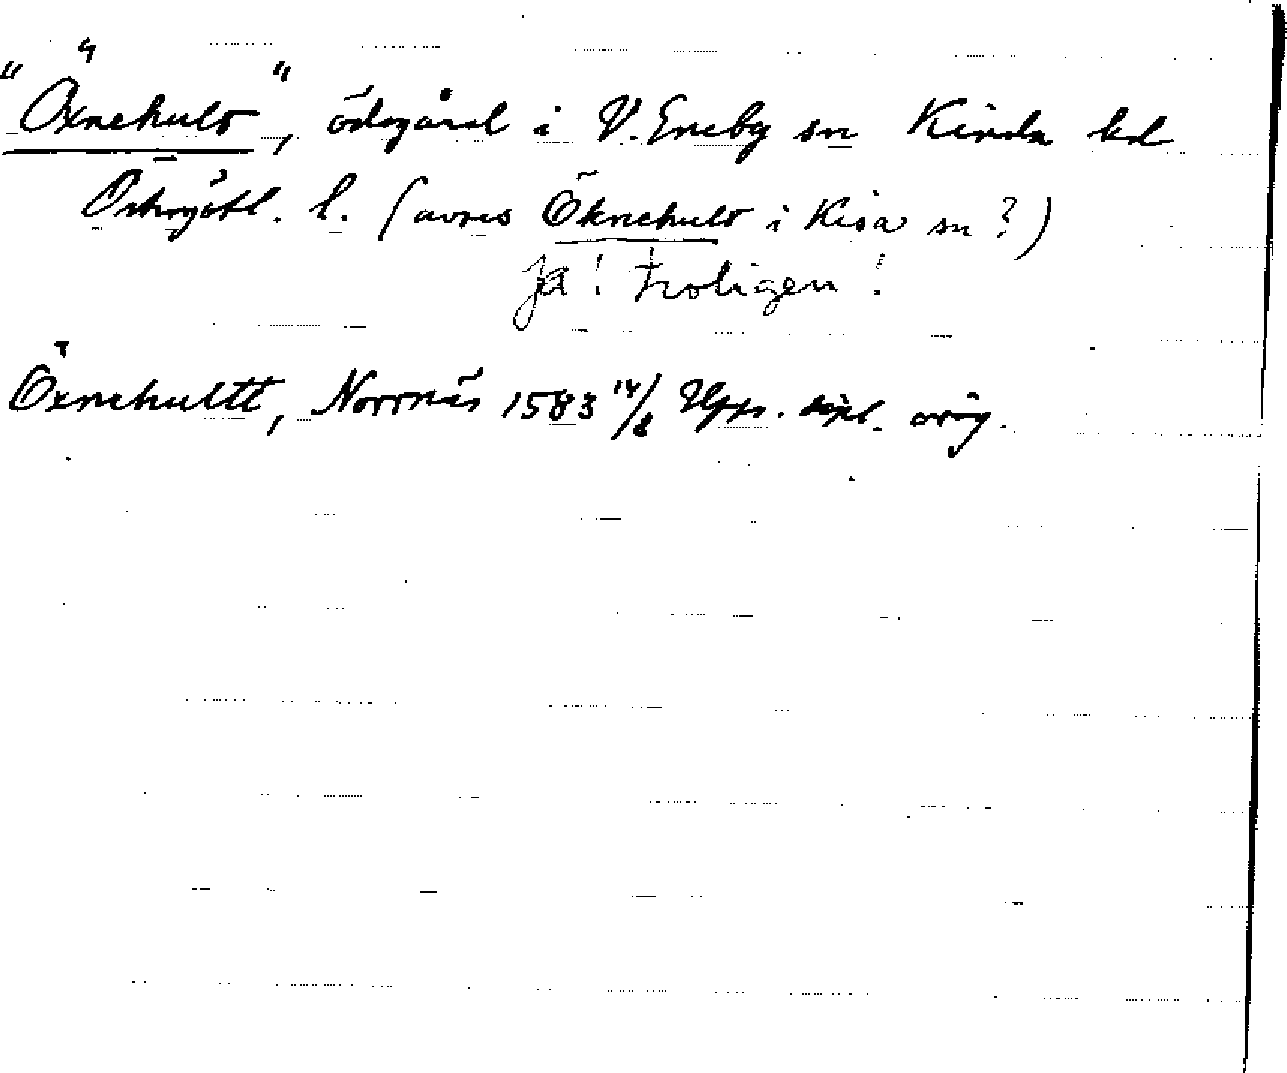 "Öxnehult", ödegård i V. Eneby sn Kinda hd
Östergötl. l. (avses Öknehult i Kisa sn?)
Ja! Troligen!
Öxnehultt, Norrnäs 1583 14/8 Upps. expl. orig.